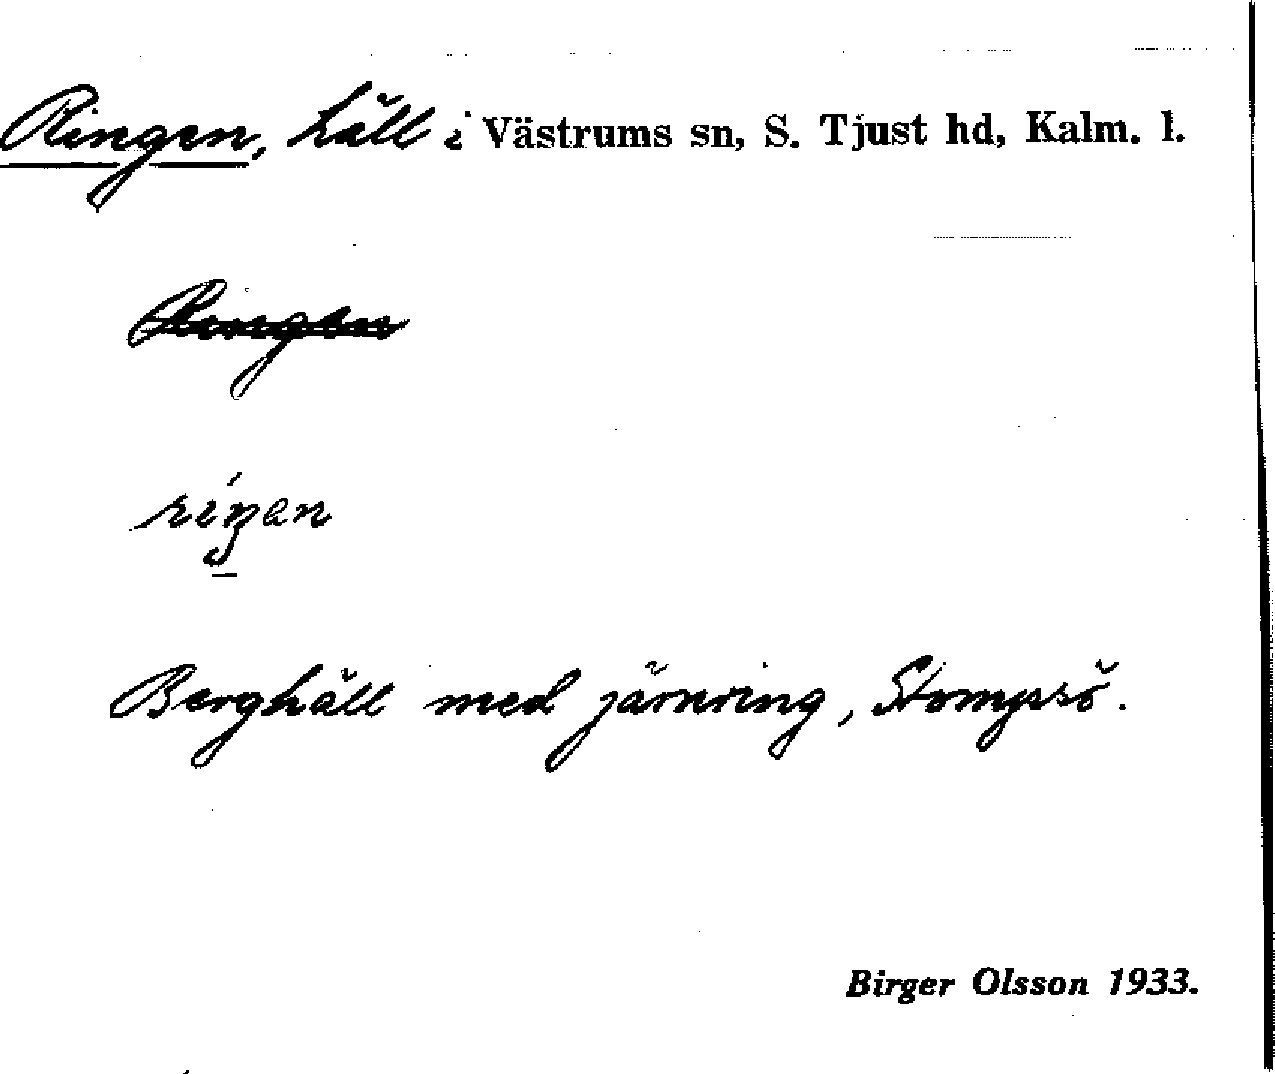 Ringen, häll i Västrums sn, S. Tjust hd, Kalm. l.
Ringen
riŋen
Berghäll med järnring, Stompsö.
Birger Olsson 1933.